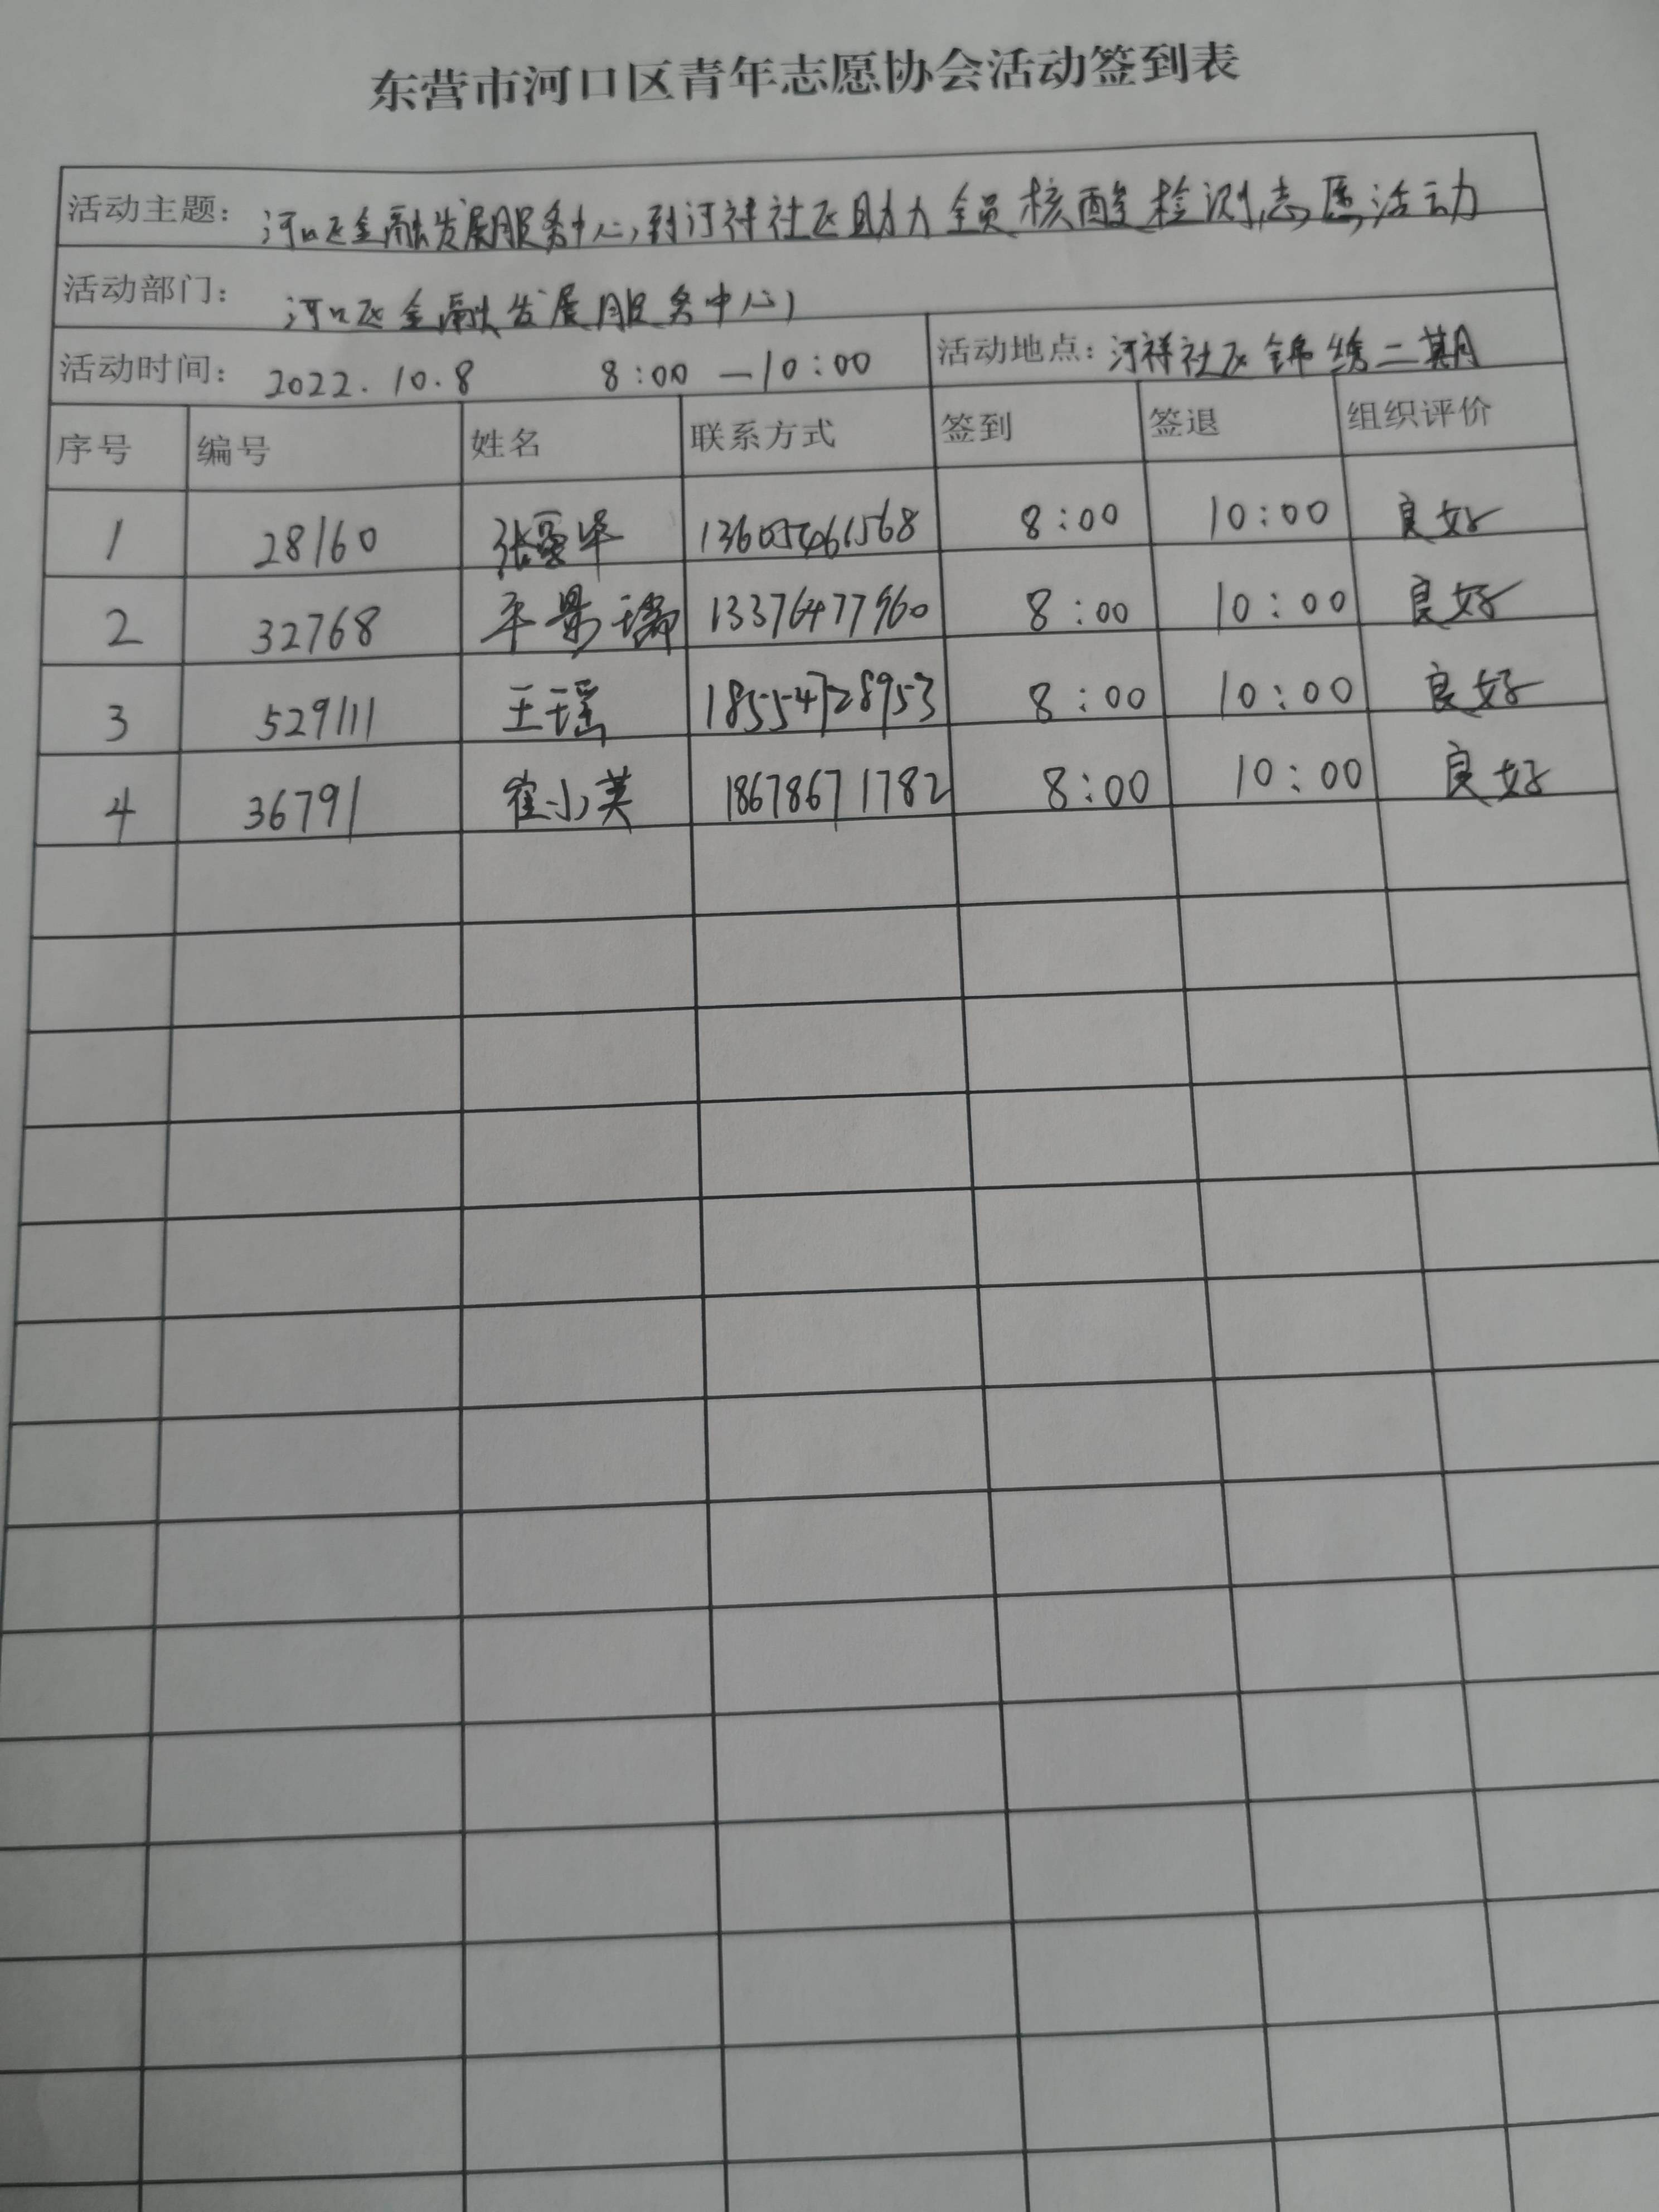 东营市河口区青年志愿协会活动签到表
活动主题: 河口区金融发展服务中心到河祥社区助力全员核酸检测志愿活动
活动部门: 河口区金融发展服务中心
活动时间: 2022.10.8 8:00—10:00 活动地点: 河祥社区锦绣二期
序号 编号 姓名 联系方式 签到 签退 组织评价
1 28160 张 13605461568 8:00 10:00 良好
2 32768 平景瑞 13376477960 8:00 10:00 良好
3 529111 王瑶 18554728953 8:00 10:00 良好
4 36791 崔小英 18678671782 8:00 10:00 良好